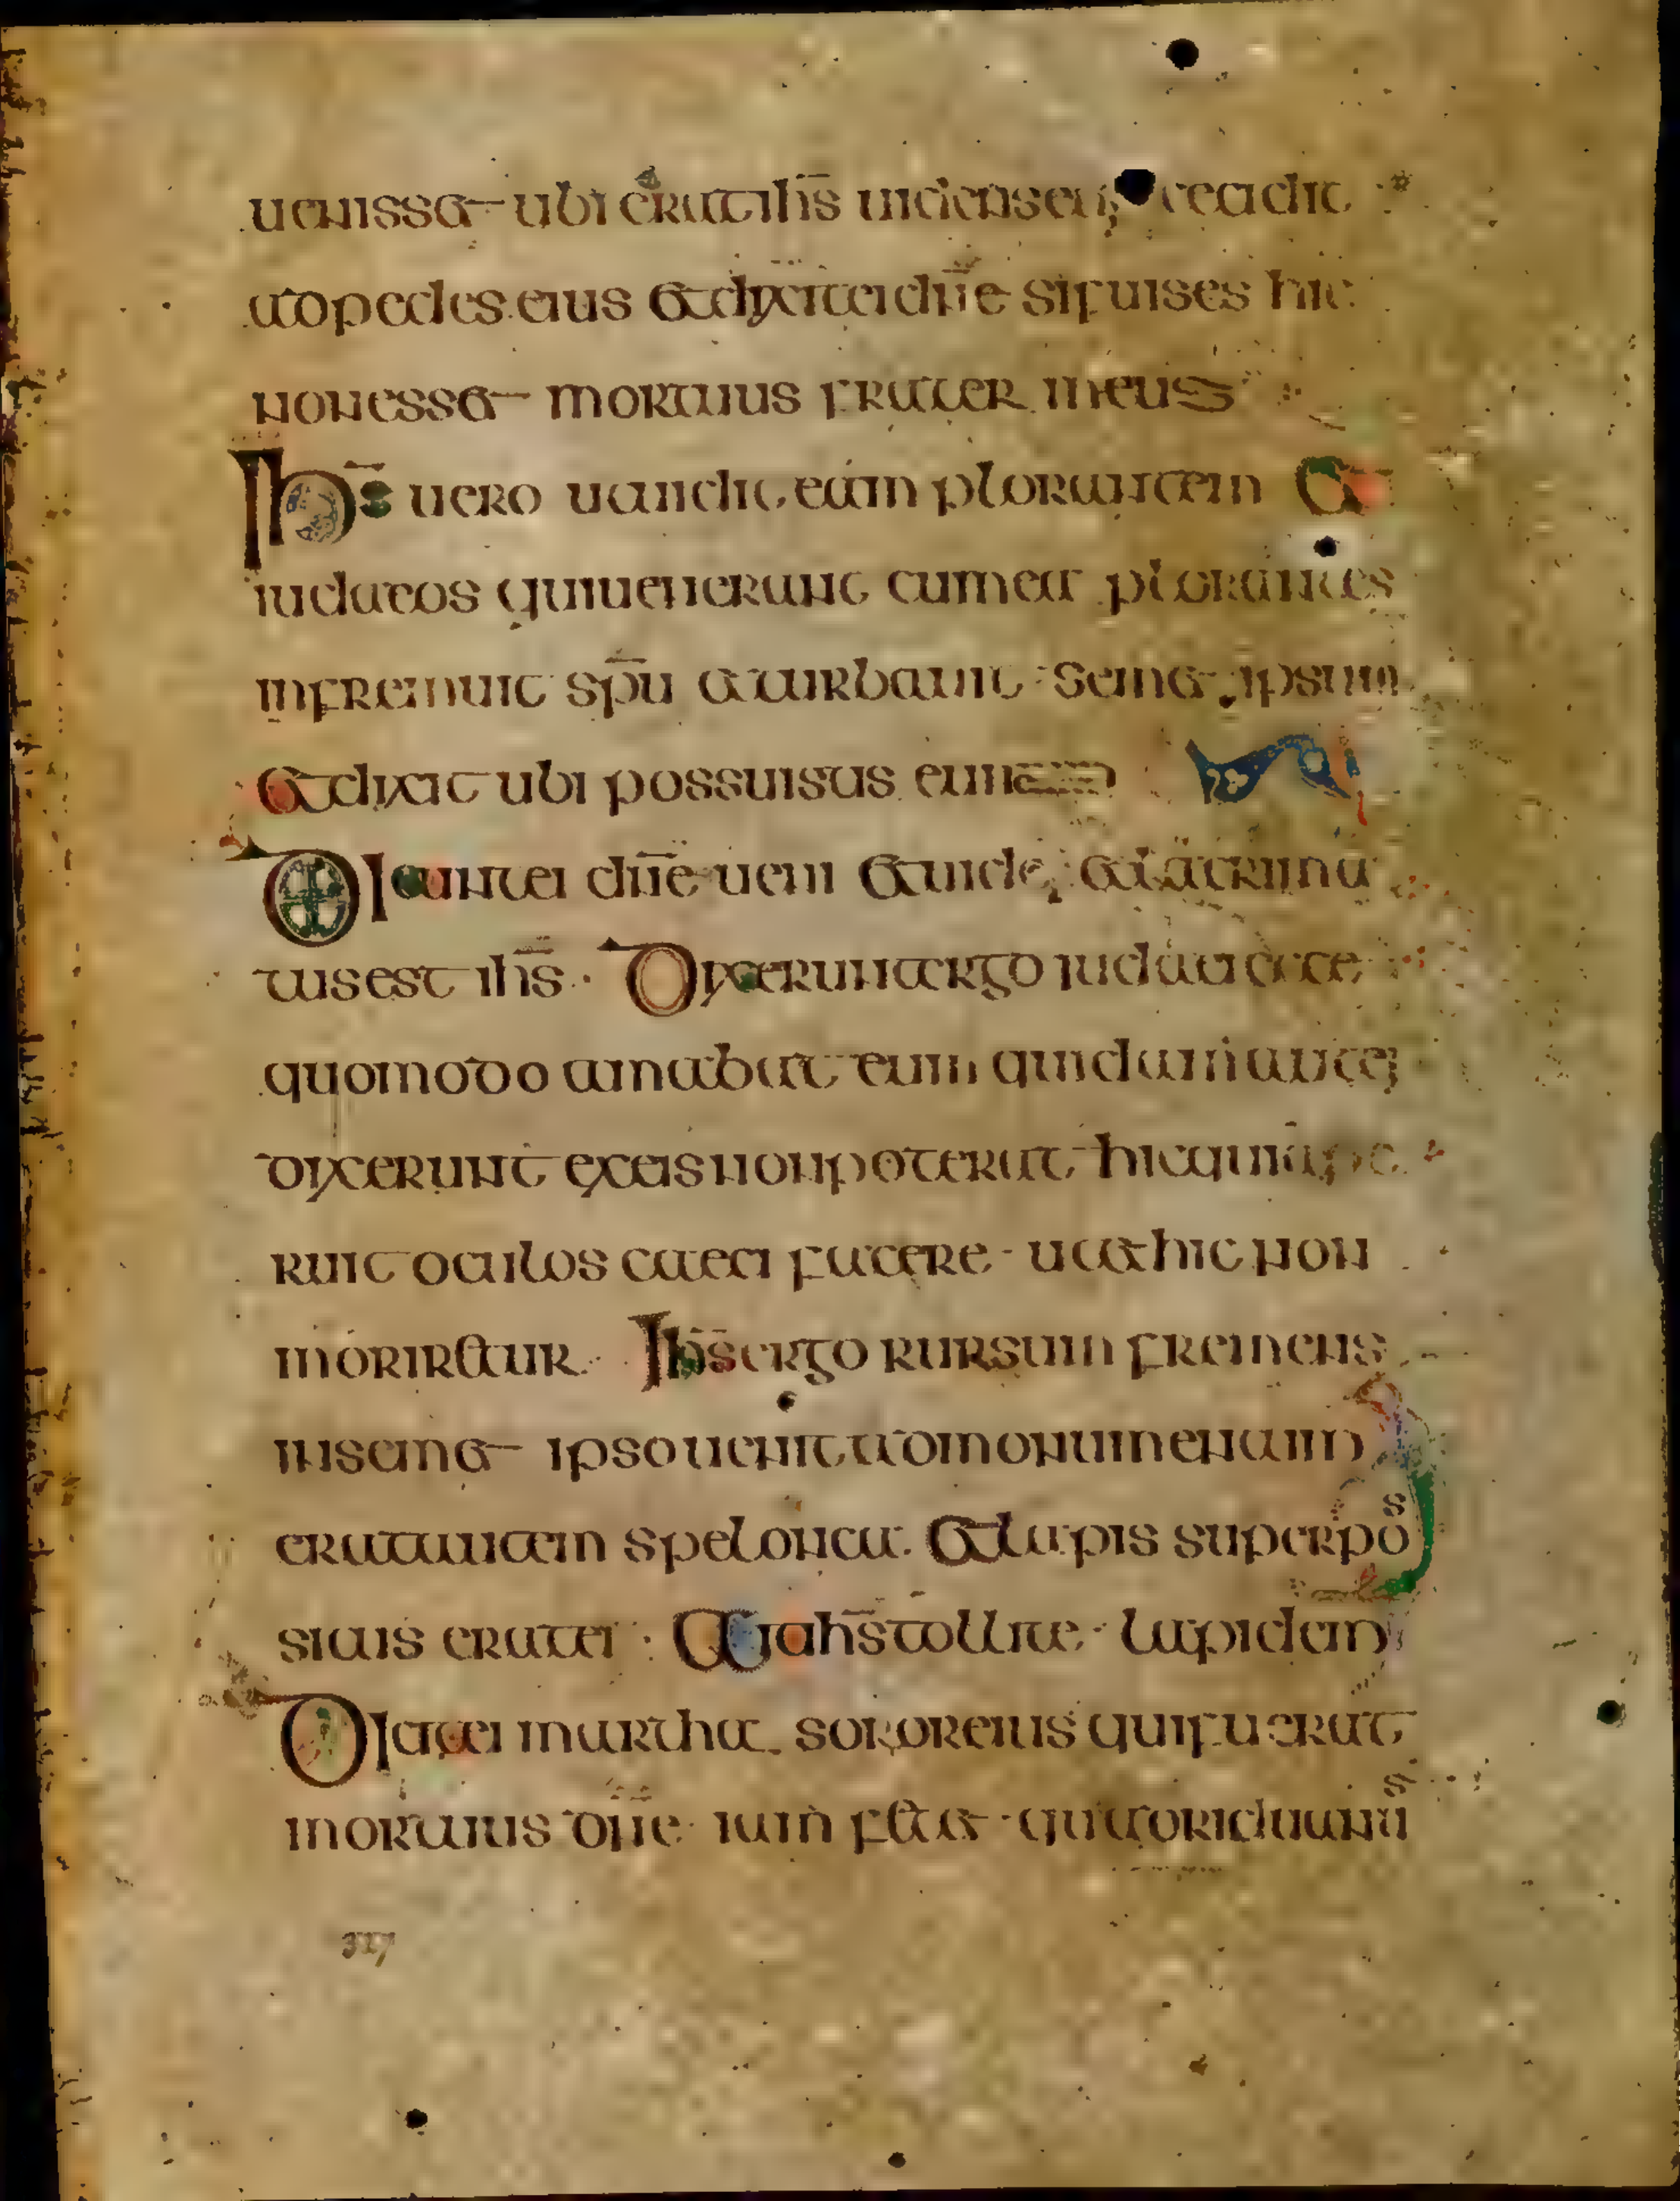 uenisset ubi erat ihs̄ uidens eum cecidit
ad pedes eius et dixit ei dn̄e si fuises hic
non esset mortuus frater meus
Ihs̄ uero ut uidit eam plorantem et
iudaeos qui uenerunt cum ea plorantes
infremuit sp̄u et turbauit semet ipsum
et dixit ubi possuistis eum
Dicunt ei dn̄e ueni et uide et lacrima
tus est ihs̄ · Dixerunt ergo iudaei ecce
quomodo amabat eum quidam autem
dixerunt ex eis non poterat hic qui ape
ruit oculos caeci facere · ut et hic non
moriretur · Ihs̄ ergo rursum fremens
in semet ipso uenit ad monumentum
erat autem spelonca · et lapis superpos
situs erat ei · Et ait ihs̄ tollite · lapidem
Dicit ei martha soror eius qui fuerat
mortuus dn̄e · iam fetet · quatoriduanus
327